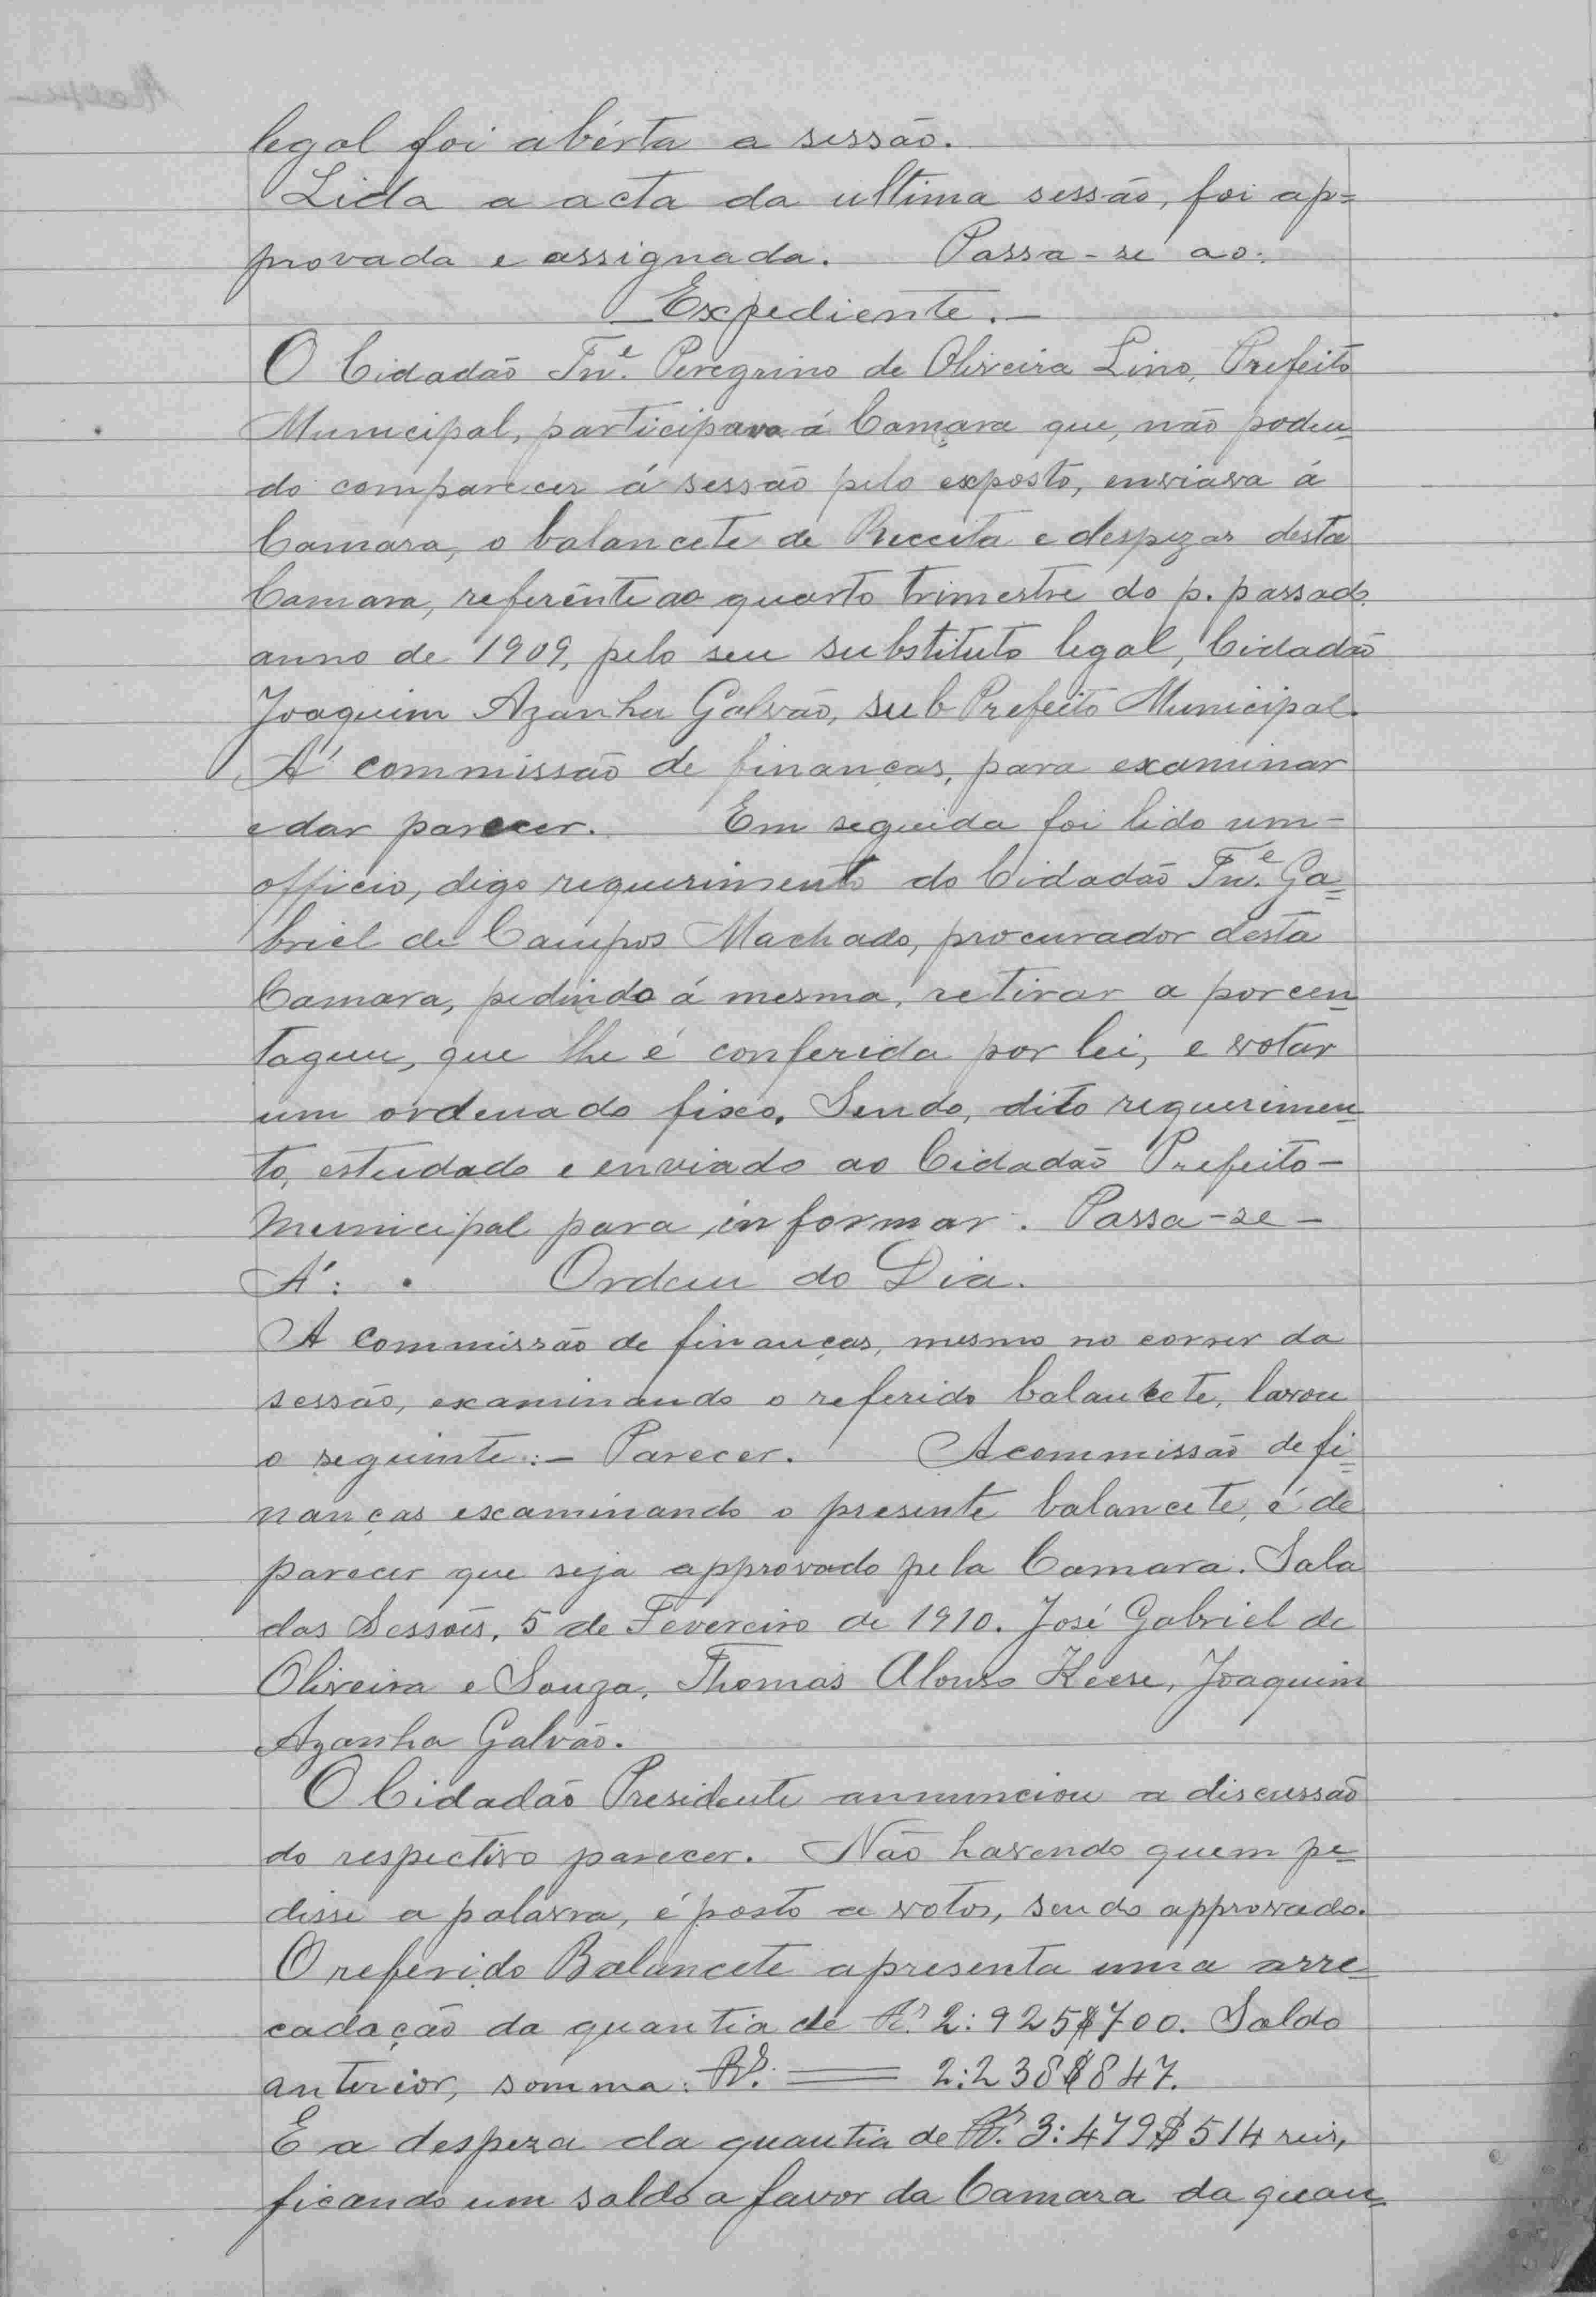 legal foi abérta a sessão.
Lida a acta da ultima sessão, foi ap=
provada e assignada. Passa-se ao:
Expediente.-
O Cidadão Tn.e Peregrino de Oliveira Lino, Prefeito
Municipal, participava á Camara que, não poden=
do comparecer á sessão pelo exposto, enviava á
Camara, o balancete de Receita e despezas desta
Camara, referênte ao quarto trimestre do p. passado
anno de 1909, pelo seu substituto legal, Cidadão
Joaquim Azanha Galvão, sub Prefeito Municipal.
A' commissão de finanças, para examinar
e dar parecer. Em seguida foi lido um-
officio, digo requerimento do Cidadão Tn.e Ga=
briel de Campos Machado, procurador desta
Camara, pedindo á mesma, retirar a porcen=
tagem, que lhe é conferida por lei, e votar
um ordenado fixo. Sendo, dito requerimen=
to, estudado e enviado ao Cidadão Prefeito-
Municipal para informar. Passa-se-
A': . Ordem do Dia.
A Commissão de finanças, mesmo no correr da
sessão, examinando o referido balancete, lavou
o seguinte:- Parecer. A commissão de fi=
nanças examinando o presente balancete, é de
parecer que seja approvado pela Camara. Sala
das Sessoês, 5 de Fevereiro de 1910. José Gabriel de
Oliveira e Souza, Thomas Alonso Keese, Joaquim
Azanha Galvão.
O Cidadão Presidente annunciou a discussão
do respectivo parecer. Não havendo quem pe=
disse a palavra, é posto a votos, sendo approvado.
O referido Balancete apresenta uma arre=
cadação da quantia de Rs. 2:925$700. Saldo
anterior, somma: Rs. = 2:238$847.
E a despeza da quantia de Rs. 3:479$514 reis,
ficando um saldo a favor da Camara da quan=